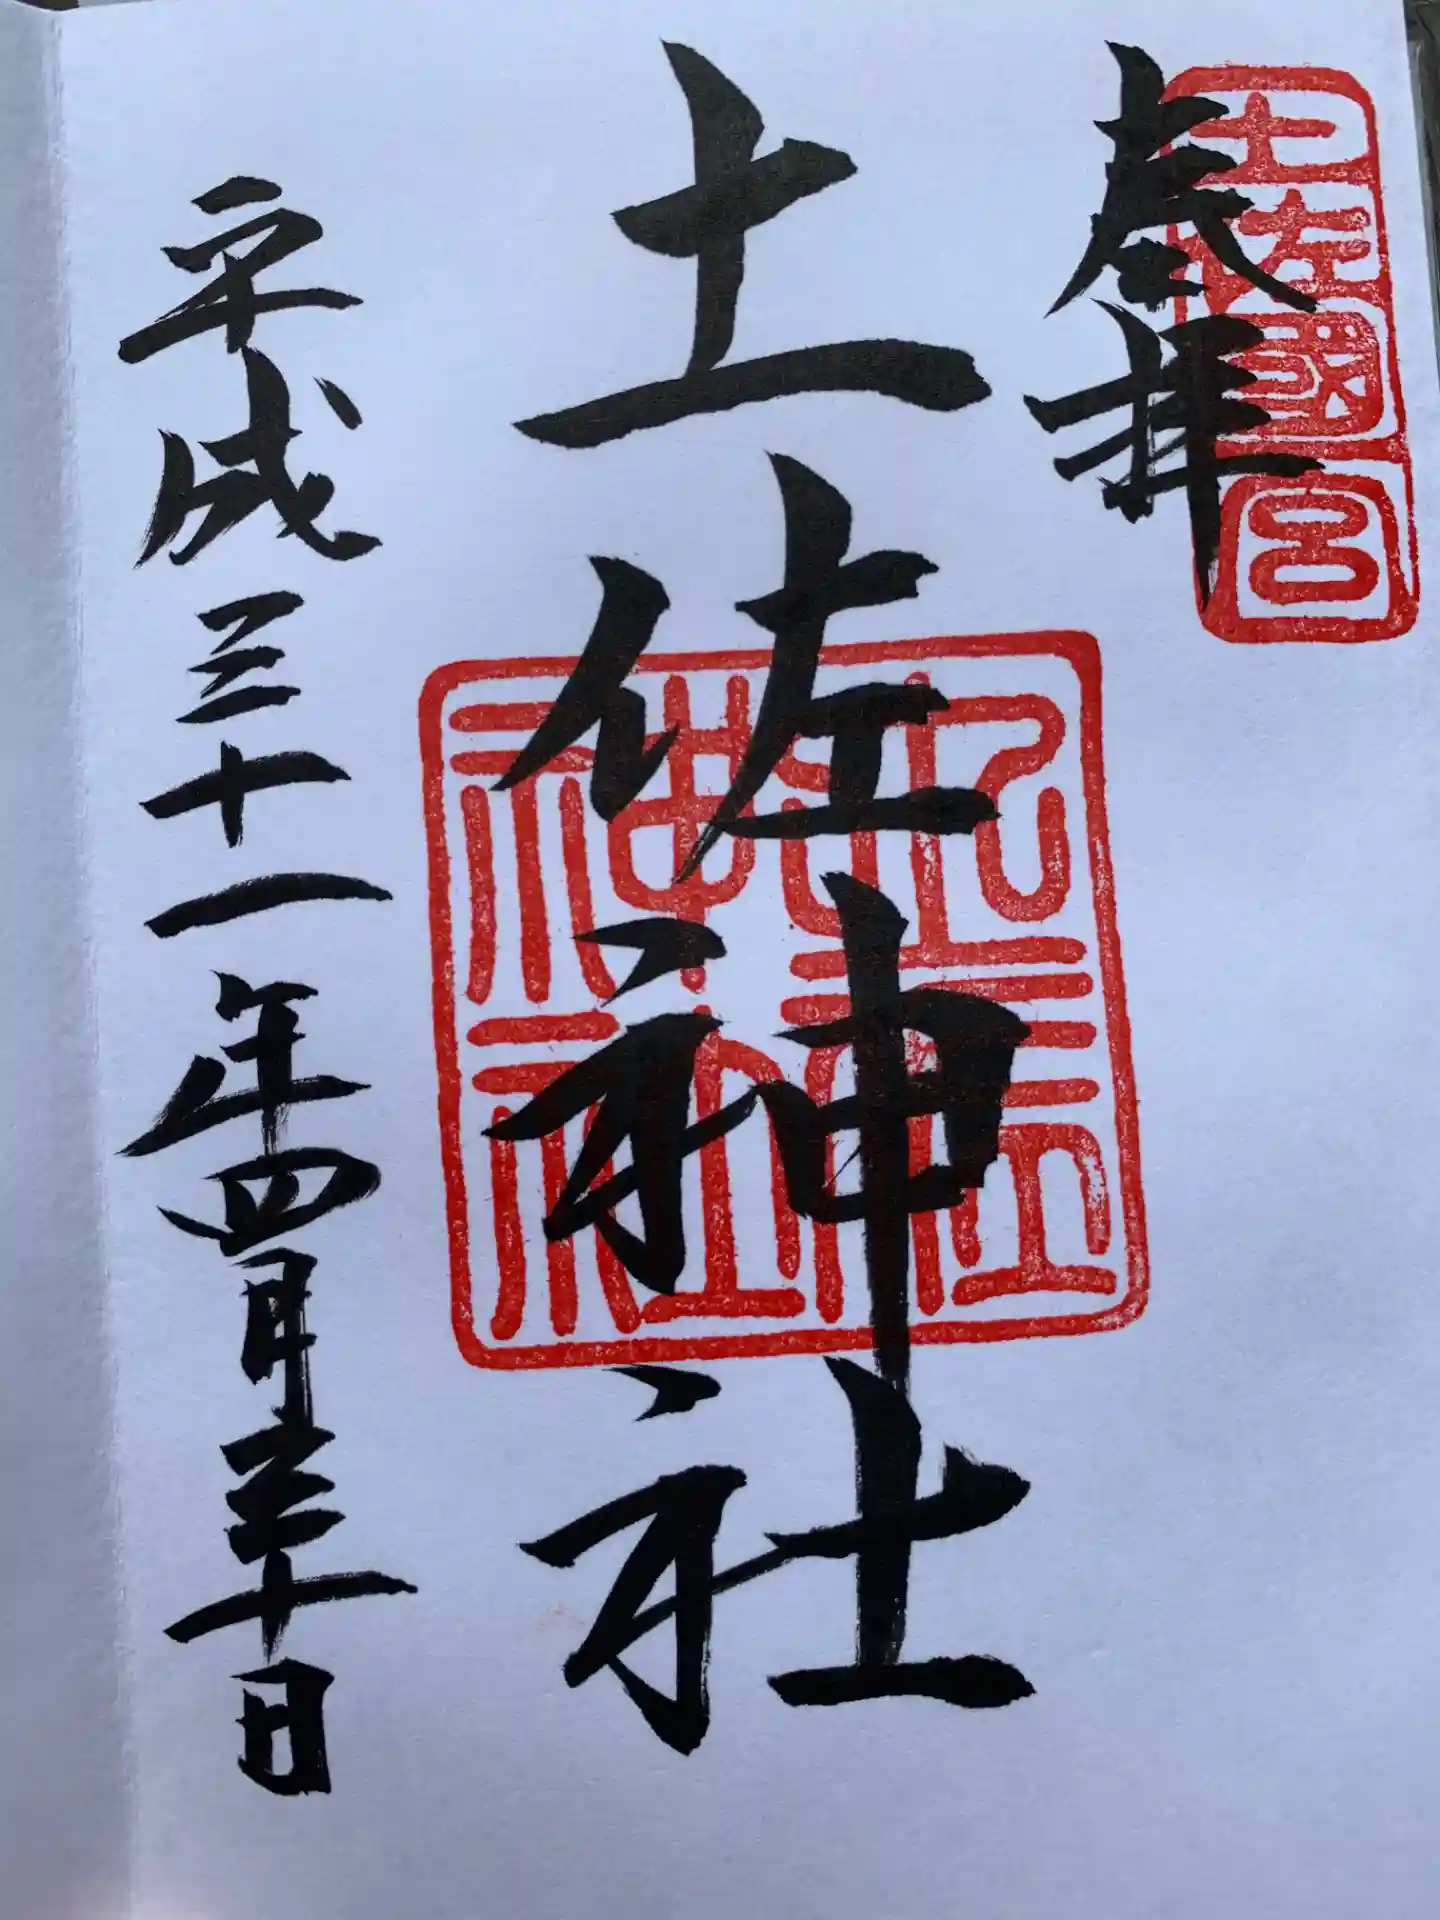 土佐國一宮
奉拝
土佐神社
平成三十一年四月三十日